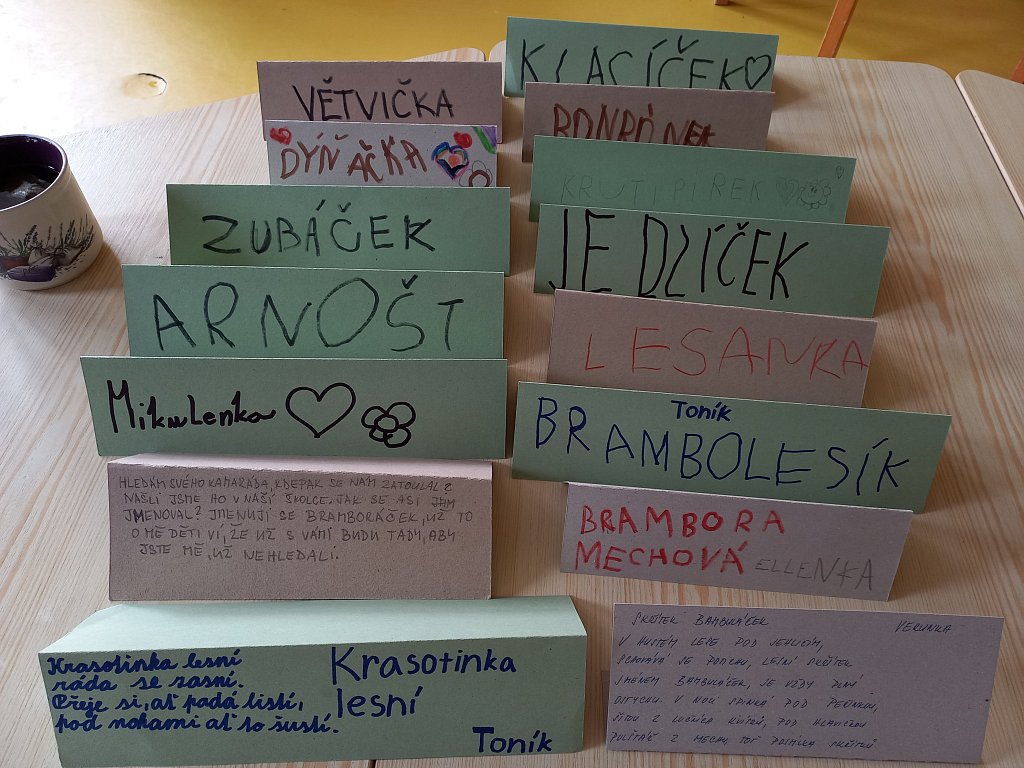 VĚTVIČKA
DÝŇAČKA
ZUBÁČEK
ARNOŠT
MikuLenka
HLEDÁM SVÉHO KAMARÁDA, KDEPAK SE NÁM ZATOULAL?
NAŠLI JSME HO V NAŠÍ ŠKOLCE. JAK SE ASI
JMENOVAL? JMENUJI SE BRAMBORÁČEK, UŽ TO
O MĚ DĚTI VÍ, ŽE UŽ S VÁMI BUDU TADY, ABY
JSTE MĚ, UŽ NEHLEDALI.
Krasotinka lesní
ráda se zasní.
Přeje si, ať padá listí,
pod nohami ať to šustí.
Krasotinka
lesní
Toník
KLACÍČEK
KRUTIPÍREK
JEDLÍČEK
LESANKA
Toník
BRAMBOLESÍK
BRAMBORA
MECHOVÁ ELLENKA
SKŘÍTEK BAMBULÁČEK VERUNKA
V HUSTÉM LESE POD JEHLIČÍM,
SCHOVÁVÁ SE POTICHU, LESNÍ SKŘÍTEK
JMÉNEM BAMBULÁČEK, JE VŽDY PLNÝ
POD PEŘINKOU,
POD HLAVIČKOU
POLŠTÁŘ Z MECHU, TOŤ SKŘÍTKŮ